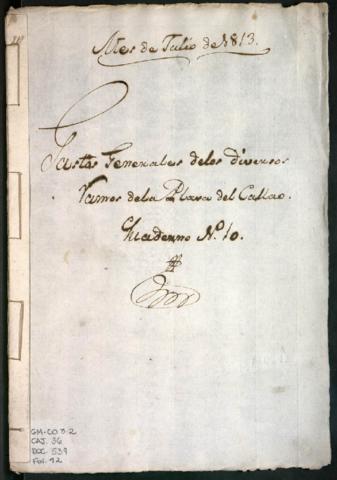 Mes de Julio de 1813.
Gastos Generales delos diversos
Ramos dela Plaza del Callao.
Quaderno No. 10.
GM-CO 3-2
CAJ. 36
DOC. 539
Fol. 42